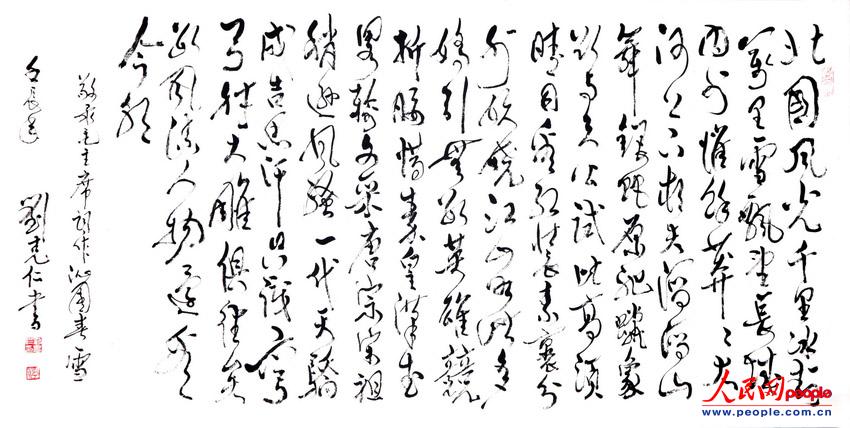 北國风光千里冰封
万里雪飘望長城
内外惟餘莽莽大
河上下顿失滔滔山
舞銀蛇原驰蜡象
欲与天公试比高须
晴日看红装素裹分
外妖娆江山如此多
娇引無数英雄競
折腰惜秦皇漢武
略输文采唐宗宋祖
稍逊风骚一代天驕
成吉思汗只識弯
弓射大雕俱往矣
数风流人物还看
今朝
敬录毛主席词作沁園春雪
劉克仁书
人民网 people
www.people.com.cn